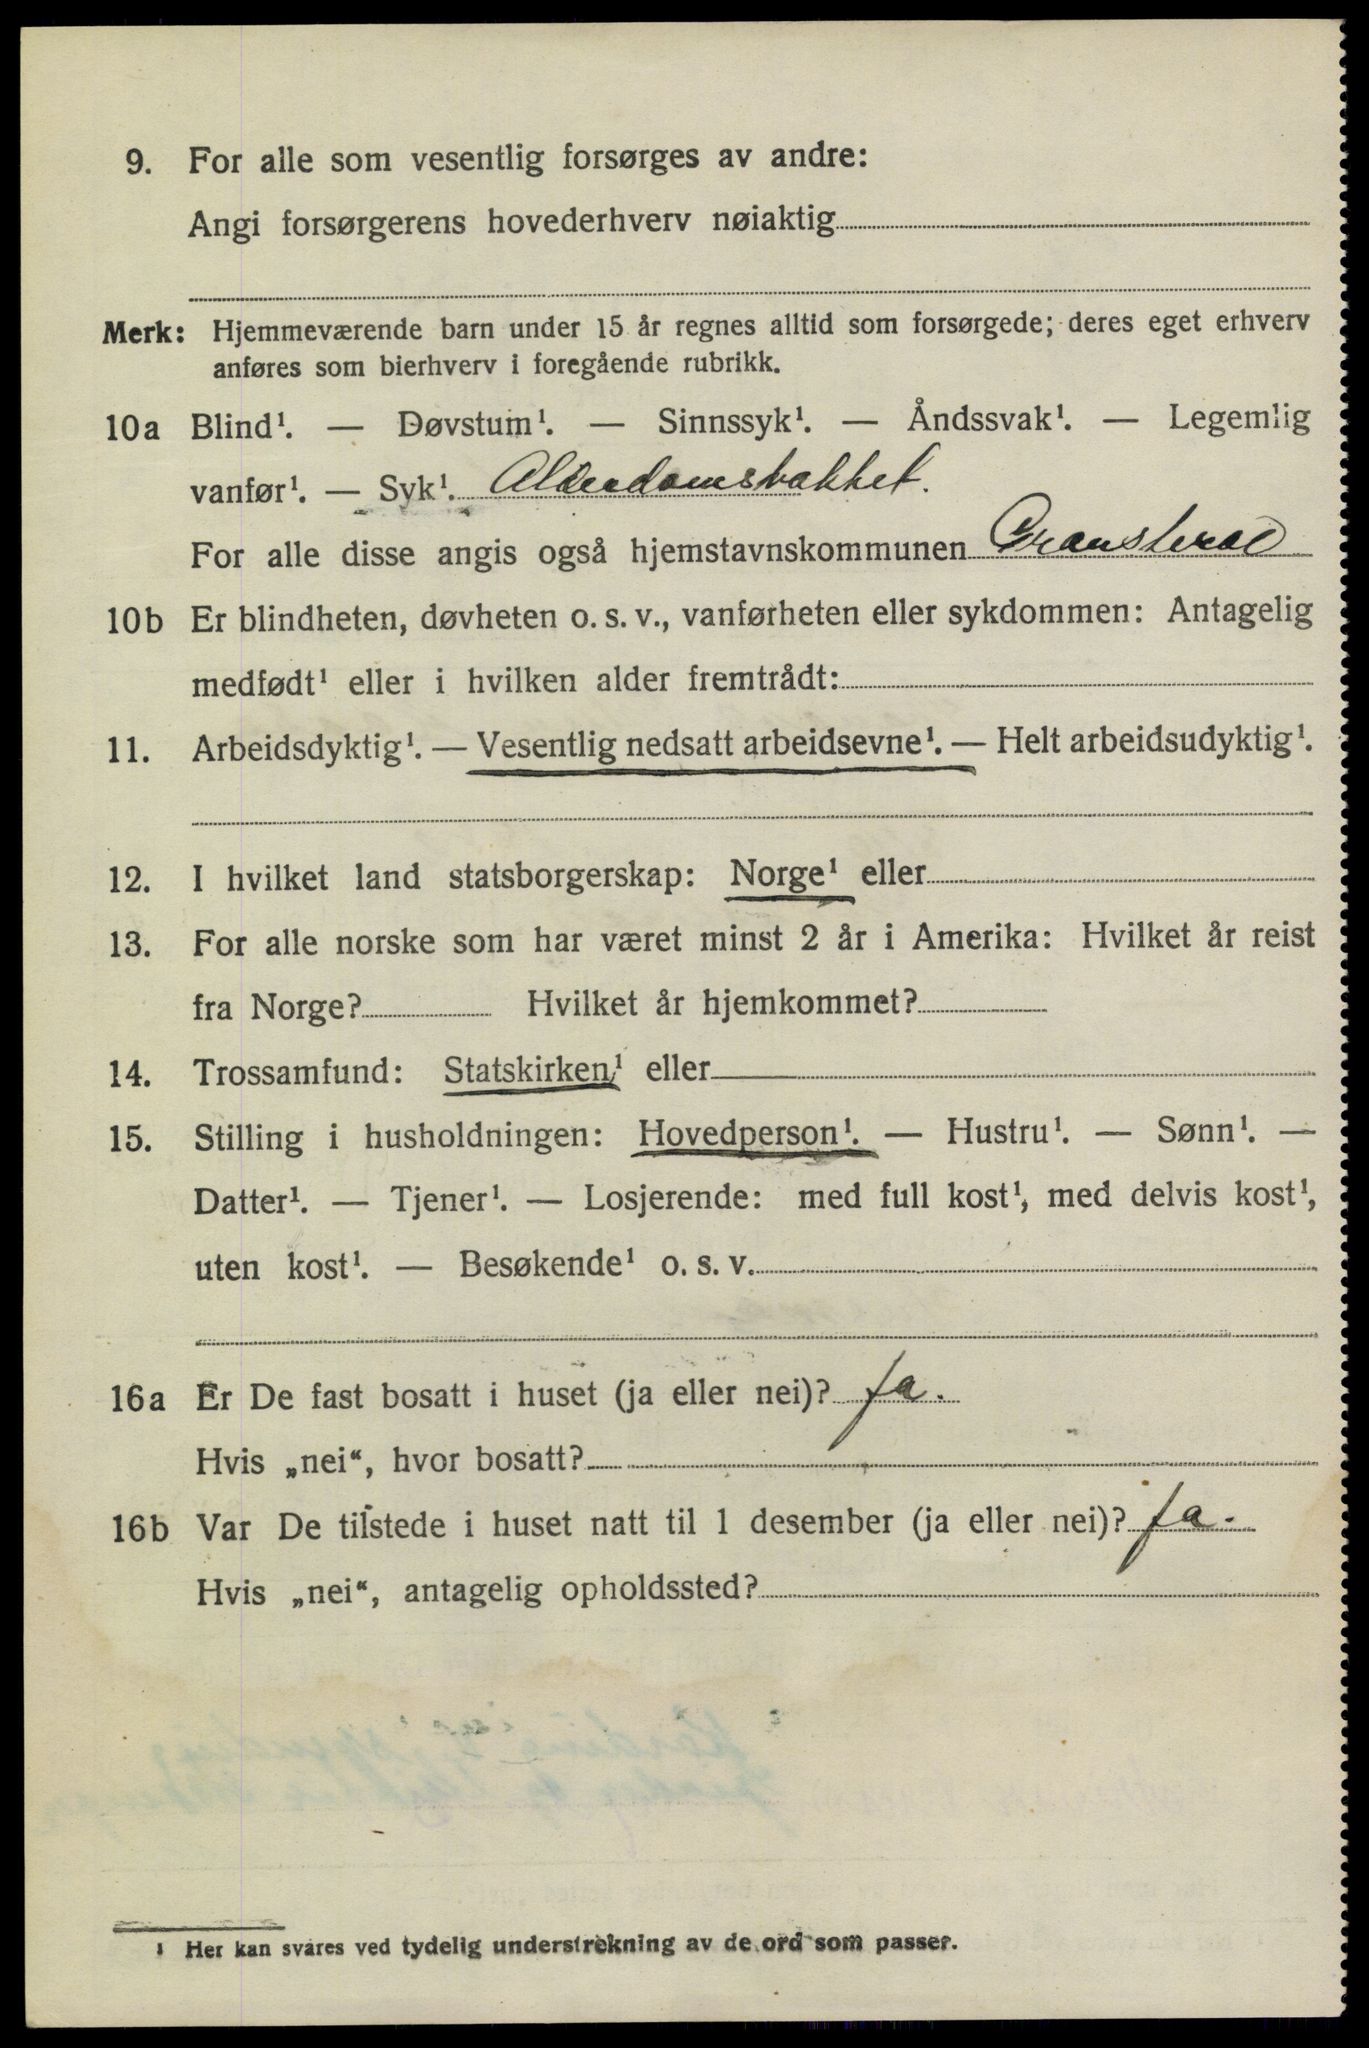 9. For alle som vesentlig forsørges av andre:
Angi forsørgerens hovederhverv nøiaktig
Merk: Hjemmeværende barn under 15 år regnes alltid som forsørgede; deres eget erhverv
anføres som bierhverv i foregående rubrikk.
10a Blind¹. — Døvstum¹. — Sinnssyk¹. — Åndssvak¹. — Legemlig
vanfør¹. — Syk¹. Alderdomssvakhet.
For alle disse angis også hjemstavnskommunen Gransherad
10b Er blindheten, døvheten o. s. v., vanførheten eller sykdommen: Antagelig
medfødt¹ eller i hvilken alder fremtrådt:
11. Arbeidsdyktig¹. — Vesentlig nedsatt arbeidsevne¹. — Helt arbeidsudyktig¹.
12. I hvilket land statsborgerskap: Norge¹ eller
13. For alle norske som har været minst 2 år i Amerika: Hvilket år reist
fra Norge? Hvilket år hjemkommet?
14. Trossamfund: Statskirken,¹ eller
15. Stilling i husholdningen: Hovedperson¹. — Hustru¹. — Sønn¹. —
Datter¹. — Tjener¹. — Losjerende: med full kost¹, med delvis kost¹,
uten kost¹. — Besøkende¹ o. s. v.
16a Er De fast bosatt i huset (ja eller nei)? ja.
Hvis „nei“, hvor bosatt?
16b Var De tilstede i huset natt til 1 desember (ja eller nei)? ja.
Hvis „nei“, antagelig opholdssted?
¹ Her kan svares ved tydelig understrekning av de ord som passer.